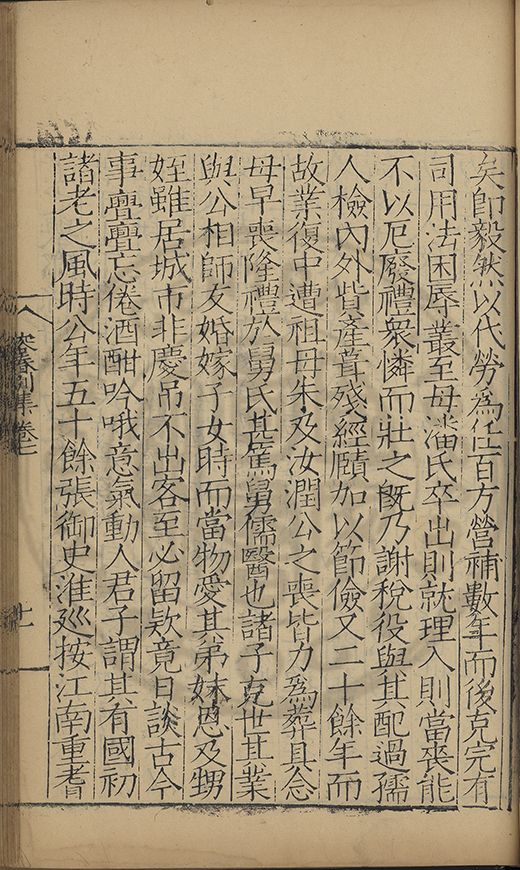 矣即毅然以代勞為任百方營補數年而後克完有
司用法困辱叢至母潘氏卒出則就理入則當喪能
不以厄廢禮衆憐而壯之旣乃謝稅役與其配過孺
人檢內外貲產葺殘經頤加以節儉又二十餘年而
故業復中遭祖母朱及汝潤公之喪皆力為葬具念
母早喪隆禮於舅氏甚篤舅儒醫也諸子克世其業
與公相師友婚嫁子女時而當物愛其弟妹恩及甥
姪雖居城市非慶吊不出客至必留欵竟日談古今
事亹亹忘倦酒酣吟哦意氣動人君子謂其有國初
諸老之風時公年五十餘張御史淮廵按江南重耆
別集卷七
十一